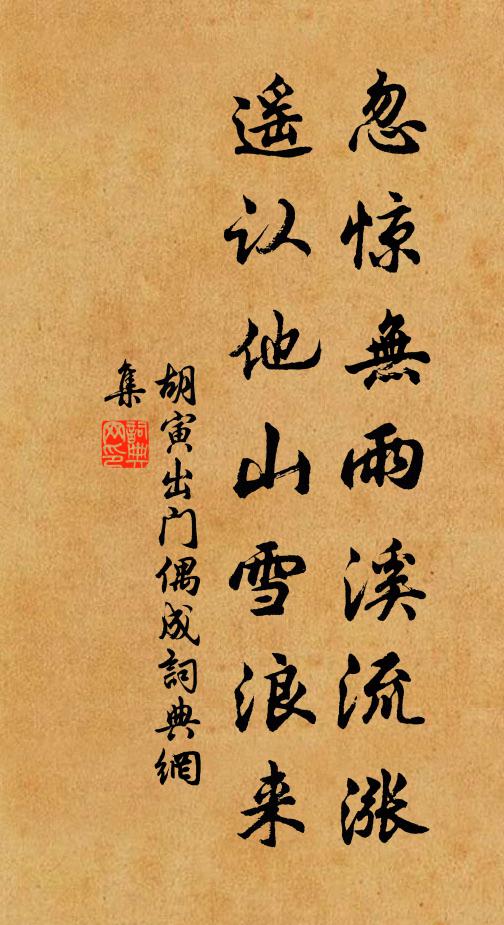 忽惊無雨溪流漲
遥认他山雪浪来
胡寅出门偶成詞典網
集
詞典網印